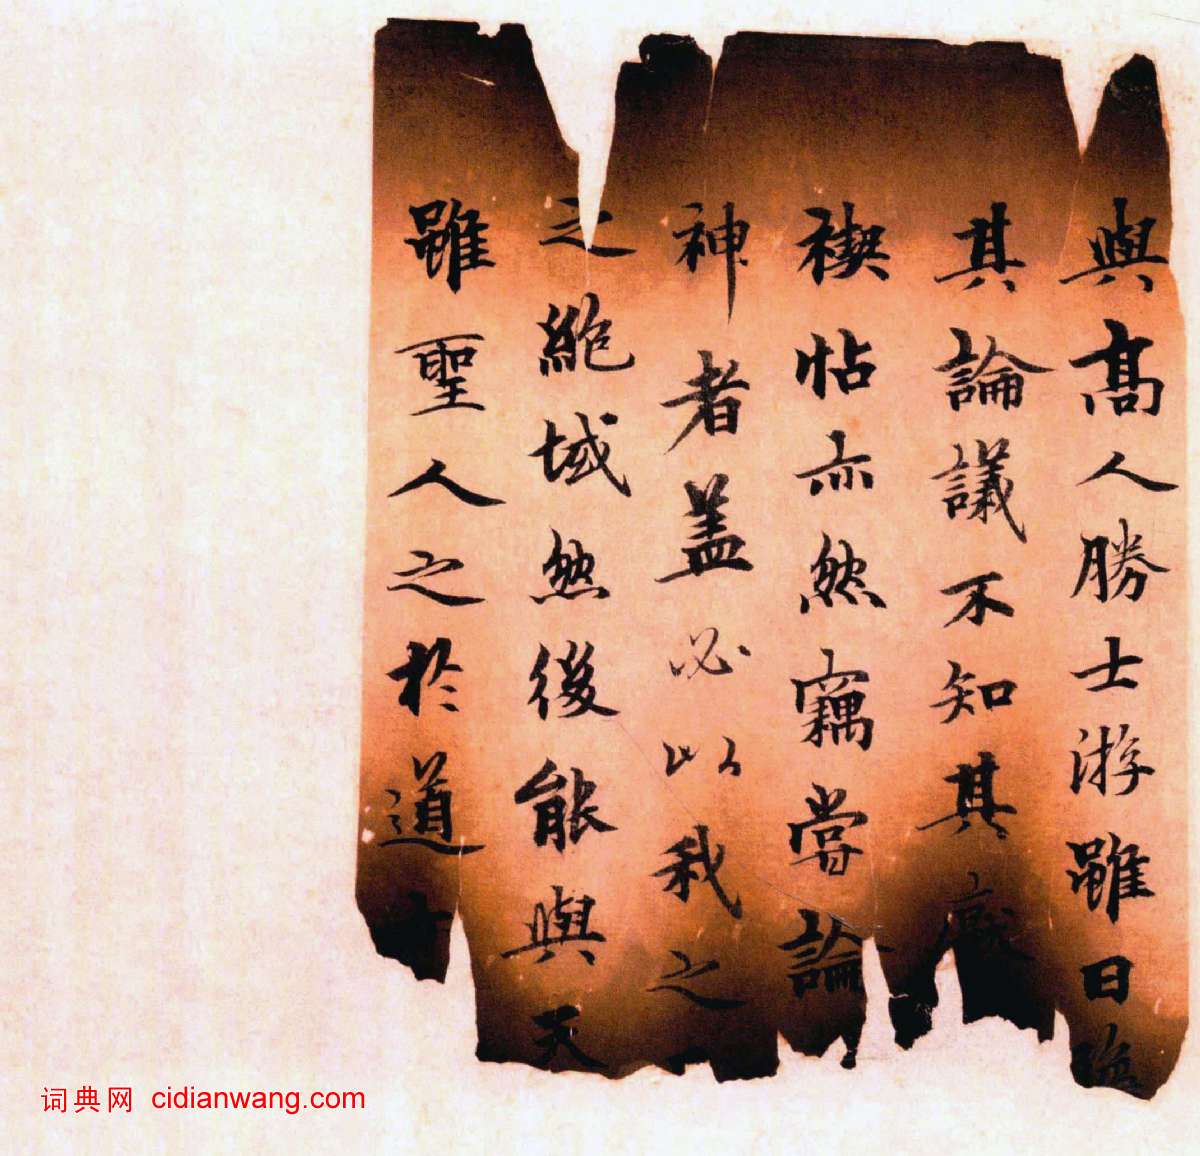 與高人勝士游雖日
其論議不知其厭
禊帖亦然竊嘗論
神者蓋必以我之
之絶域然後能與天
雖聖人之於道
词典网 cidianwang.com